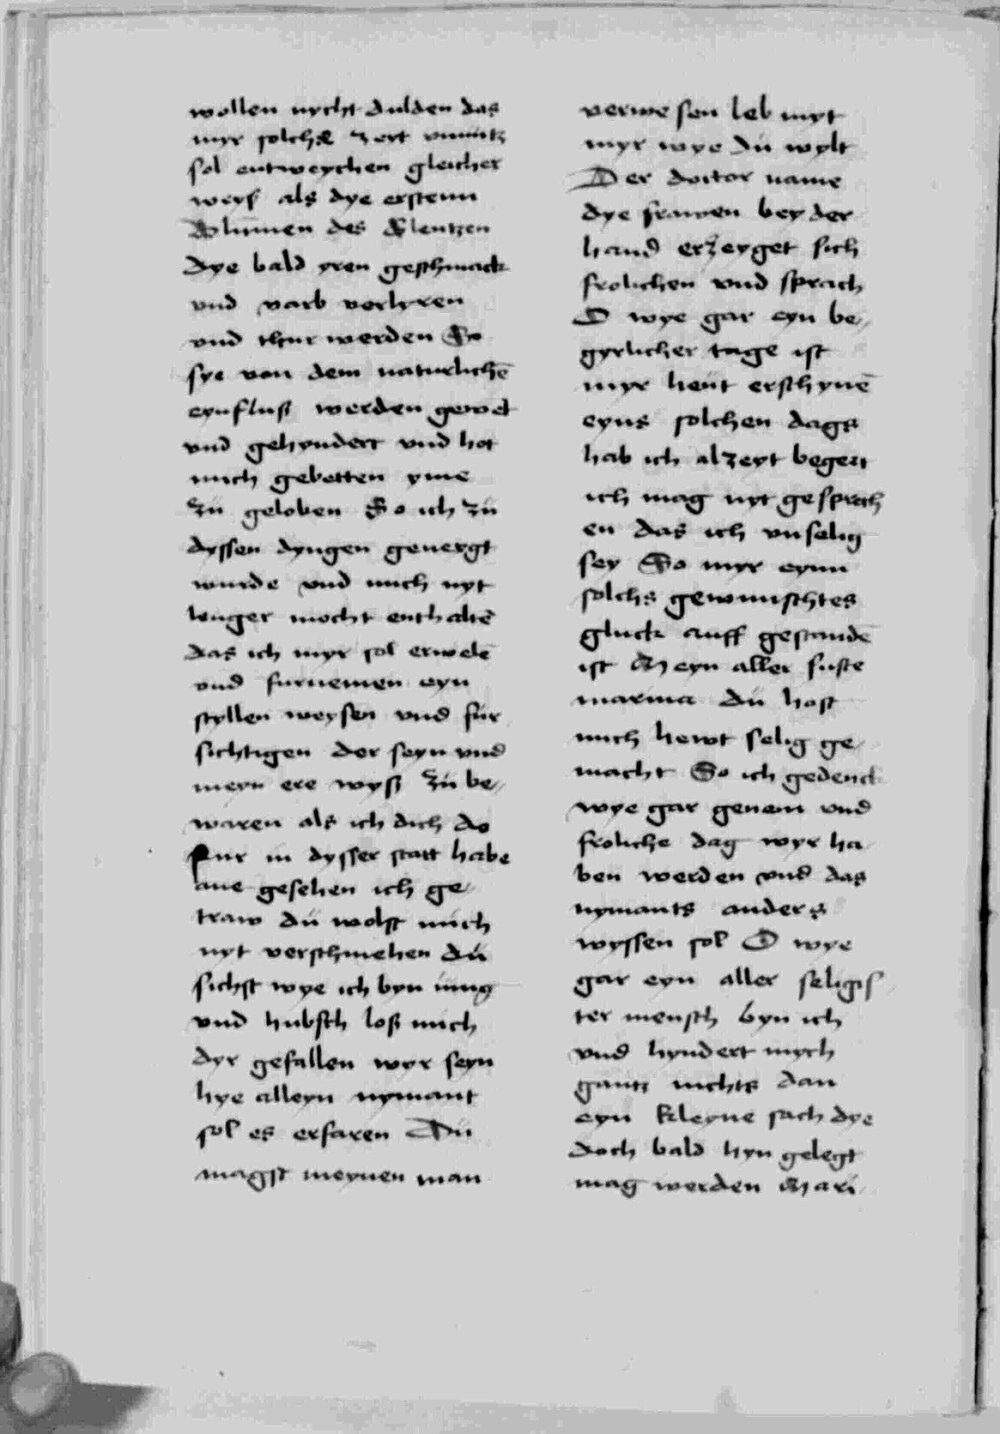 wollen nycht dulden das
myr solche zeyt vnnütz
sol entweychen gleicher
weyß als dye erstenn
Blumen des Glentzen
dye bald yren geschmack
vnd varb verlyren
vnd thur werden So
sye von dem naturlichē
eynfluß werden gewet
vnd gehyndert vnd hot
mich gebetten yme
zü geloben So ich zü
dyssen dyngen geneygt
wurde vnd mich nyt
lenger mocht enthaltē
das ich myr sol erwelē
vnd furnemen eyn
styllen weysen vnd für
sichtigen der seyn vnd
meyn ere wyß zü be/
waren als ich dich do
in dysser statt habe
ane gesehen ich ge/
traw dü wolst mich
nyt verschmehen dü
sichst wye ich byn iüng
vnd hubsch loß mich
dyr gefallen wyr seyn
hye alleyn nymant
sol es erfaren Dü
magst meynen man
verwesen leb myt
myr wye dü wylt
Der doctor name
dye frawen bey der
hand erzeyget sich
frolichen vnd sprach
O wye gar eyn be/
gyrlicher tage ist
myr heüt erschynē
eyns solchen dags
hab ich alzeyt begert
ich mag nyt gesprech
en das ich vnselig
sey So myr eynn
solchs gewunschtes
gluck auff gestandē
ist Meyn aller suste
marina dü host
mich hewt selig ge/
macht So ich gedenck
wye gar genem vnd
froliche dag wyr ha
ben werden vnd das
nymants anders
wyssen sol O wye
gar eyn aller seligis/
ter mensch byn ich
vnd hyndert mych
gantz nichts dan
eyn kleyne sach dye
doch bald hyn gelegt
mag werden Mari/